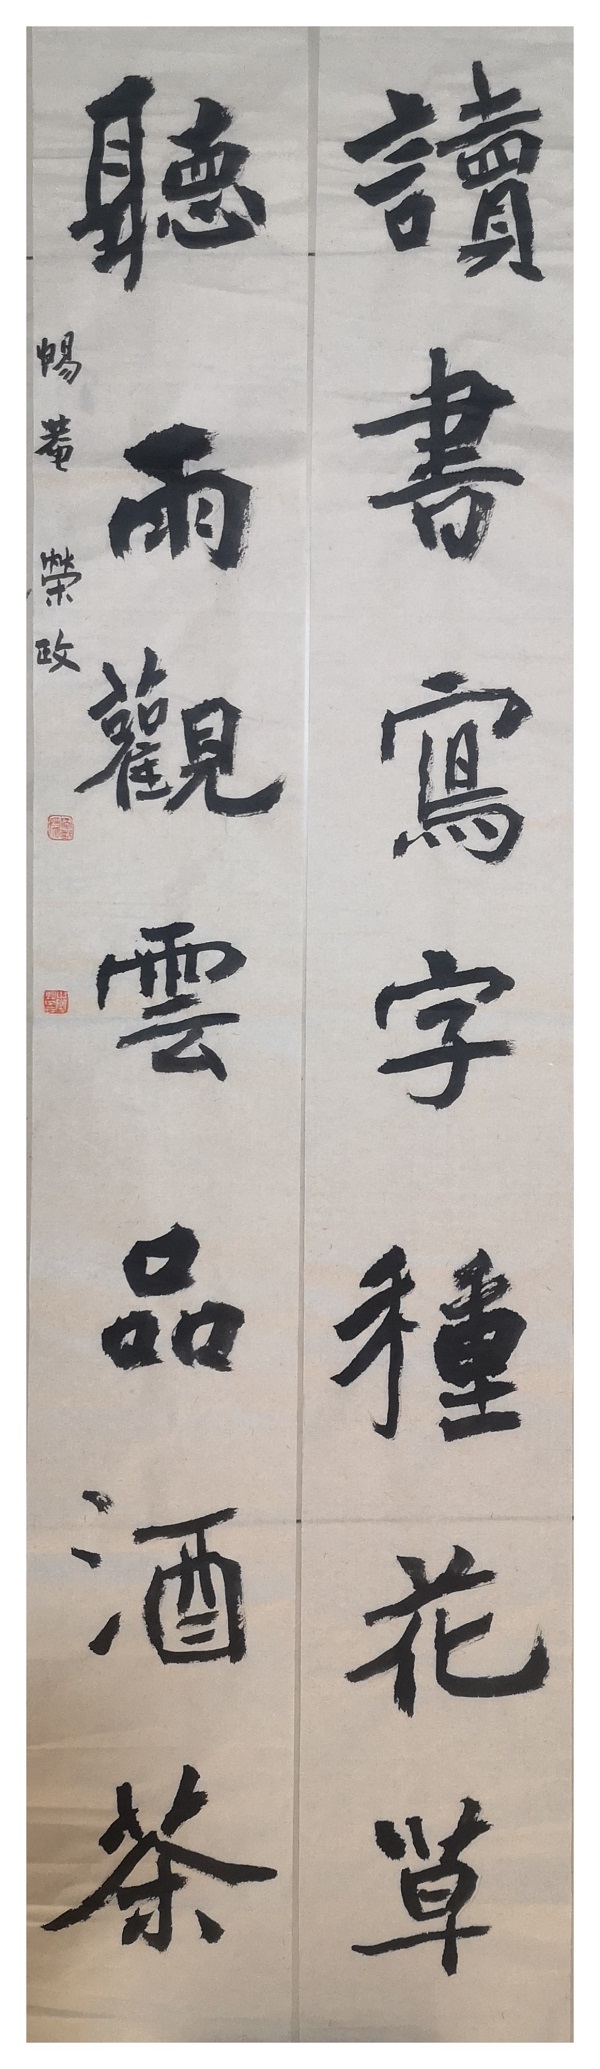 讀書寫字種花草
聽雨觀雲品酒茶
暢菴 榮政